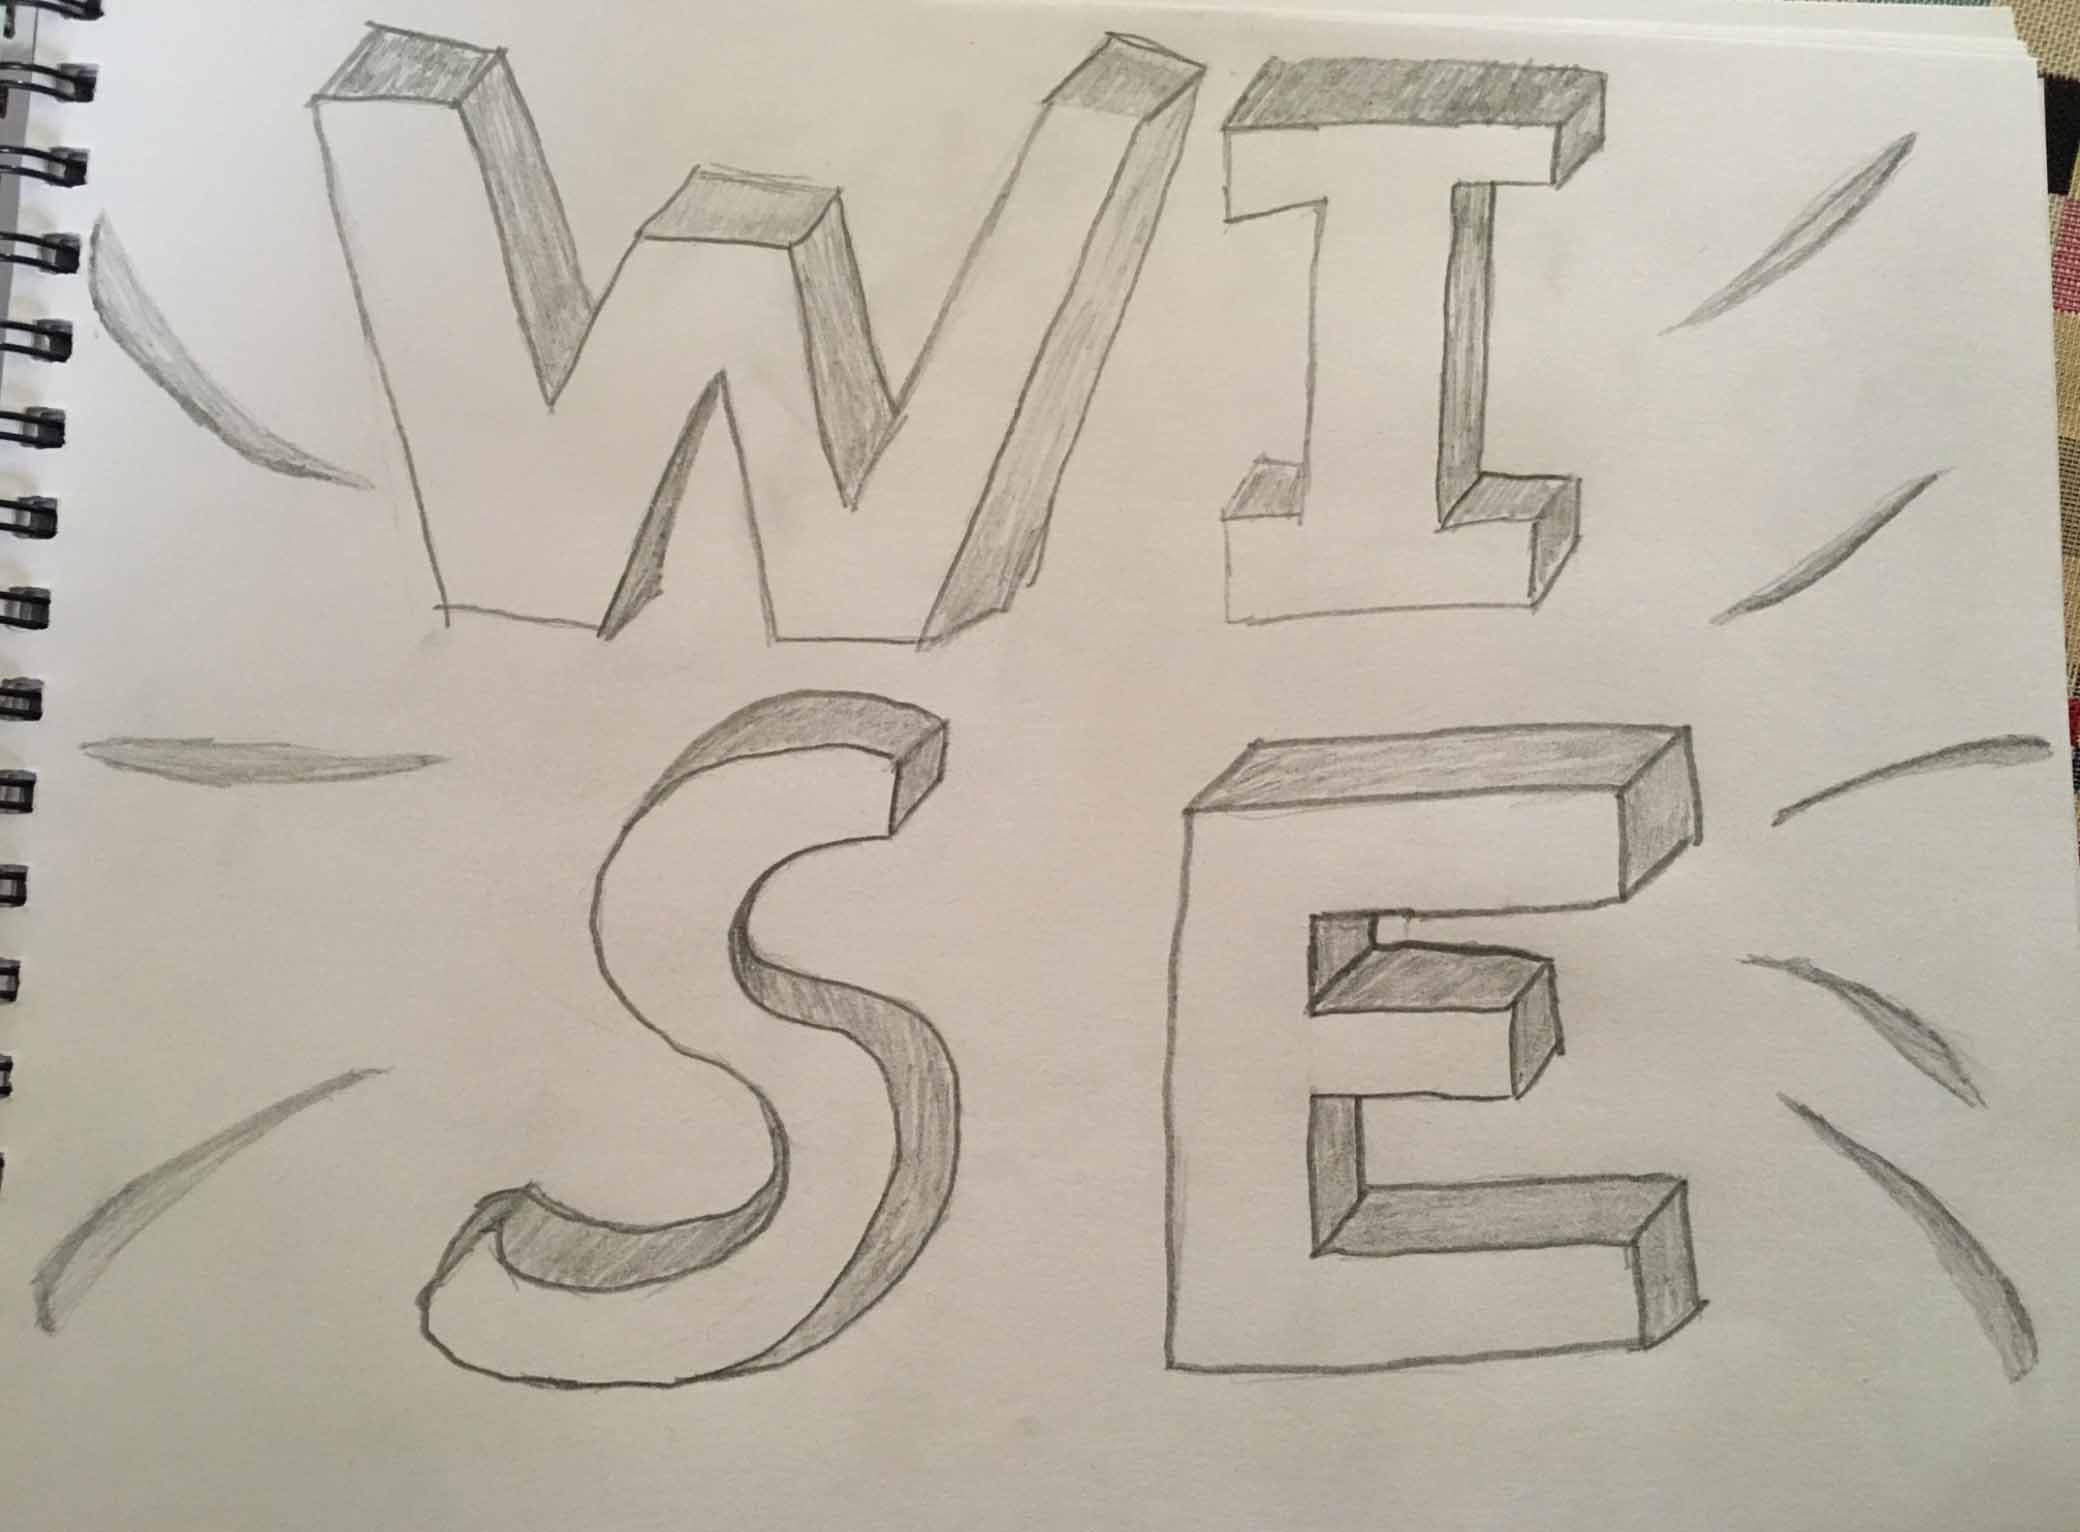 WI
SE